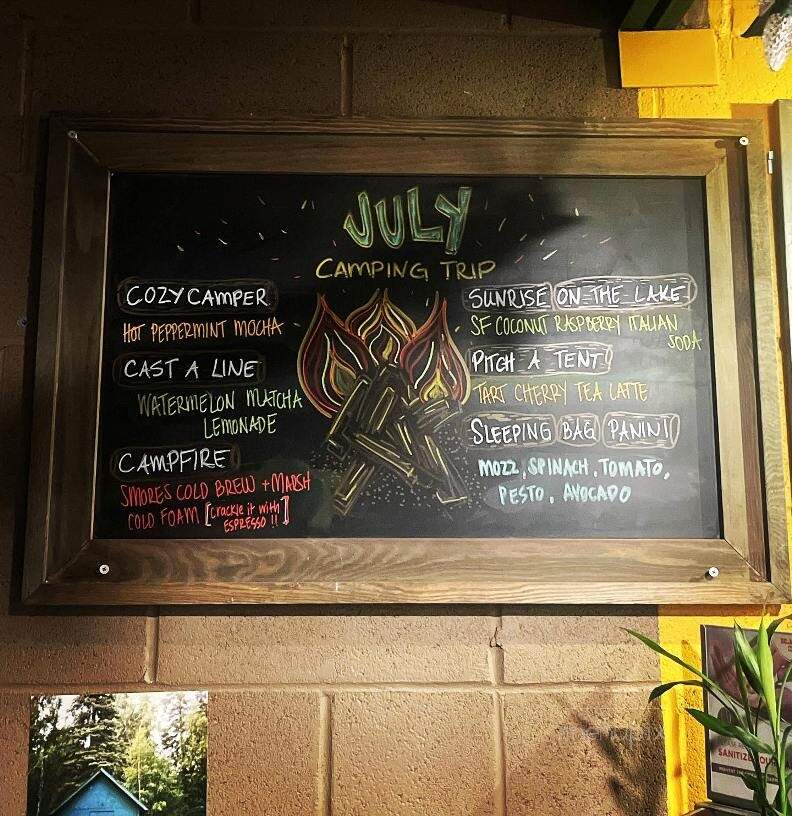 JULY
CAMPING TRIP
COZY CAMPER
HOT PEPPERMINT MOCHA
CAST A LINE
WATERMELON MATCHA
LEMONADE
CAMPFIRE
SMORES COLD BREW + MARSH
COLD FOAM [crackle it with
ESPRESSO !!]
SUNRISE ON-THE-LAKE
SF COCONUT RASPBERRY ITALIAN
SODA
PITCH A TENT
TART CHERRY TEA LATTE
SLEEPING BAG PANINI
MOZZ, SPINACH, TOMATO,
PESTO, AVOCADO
SANITIZE